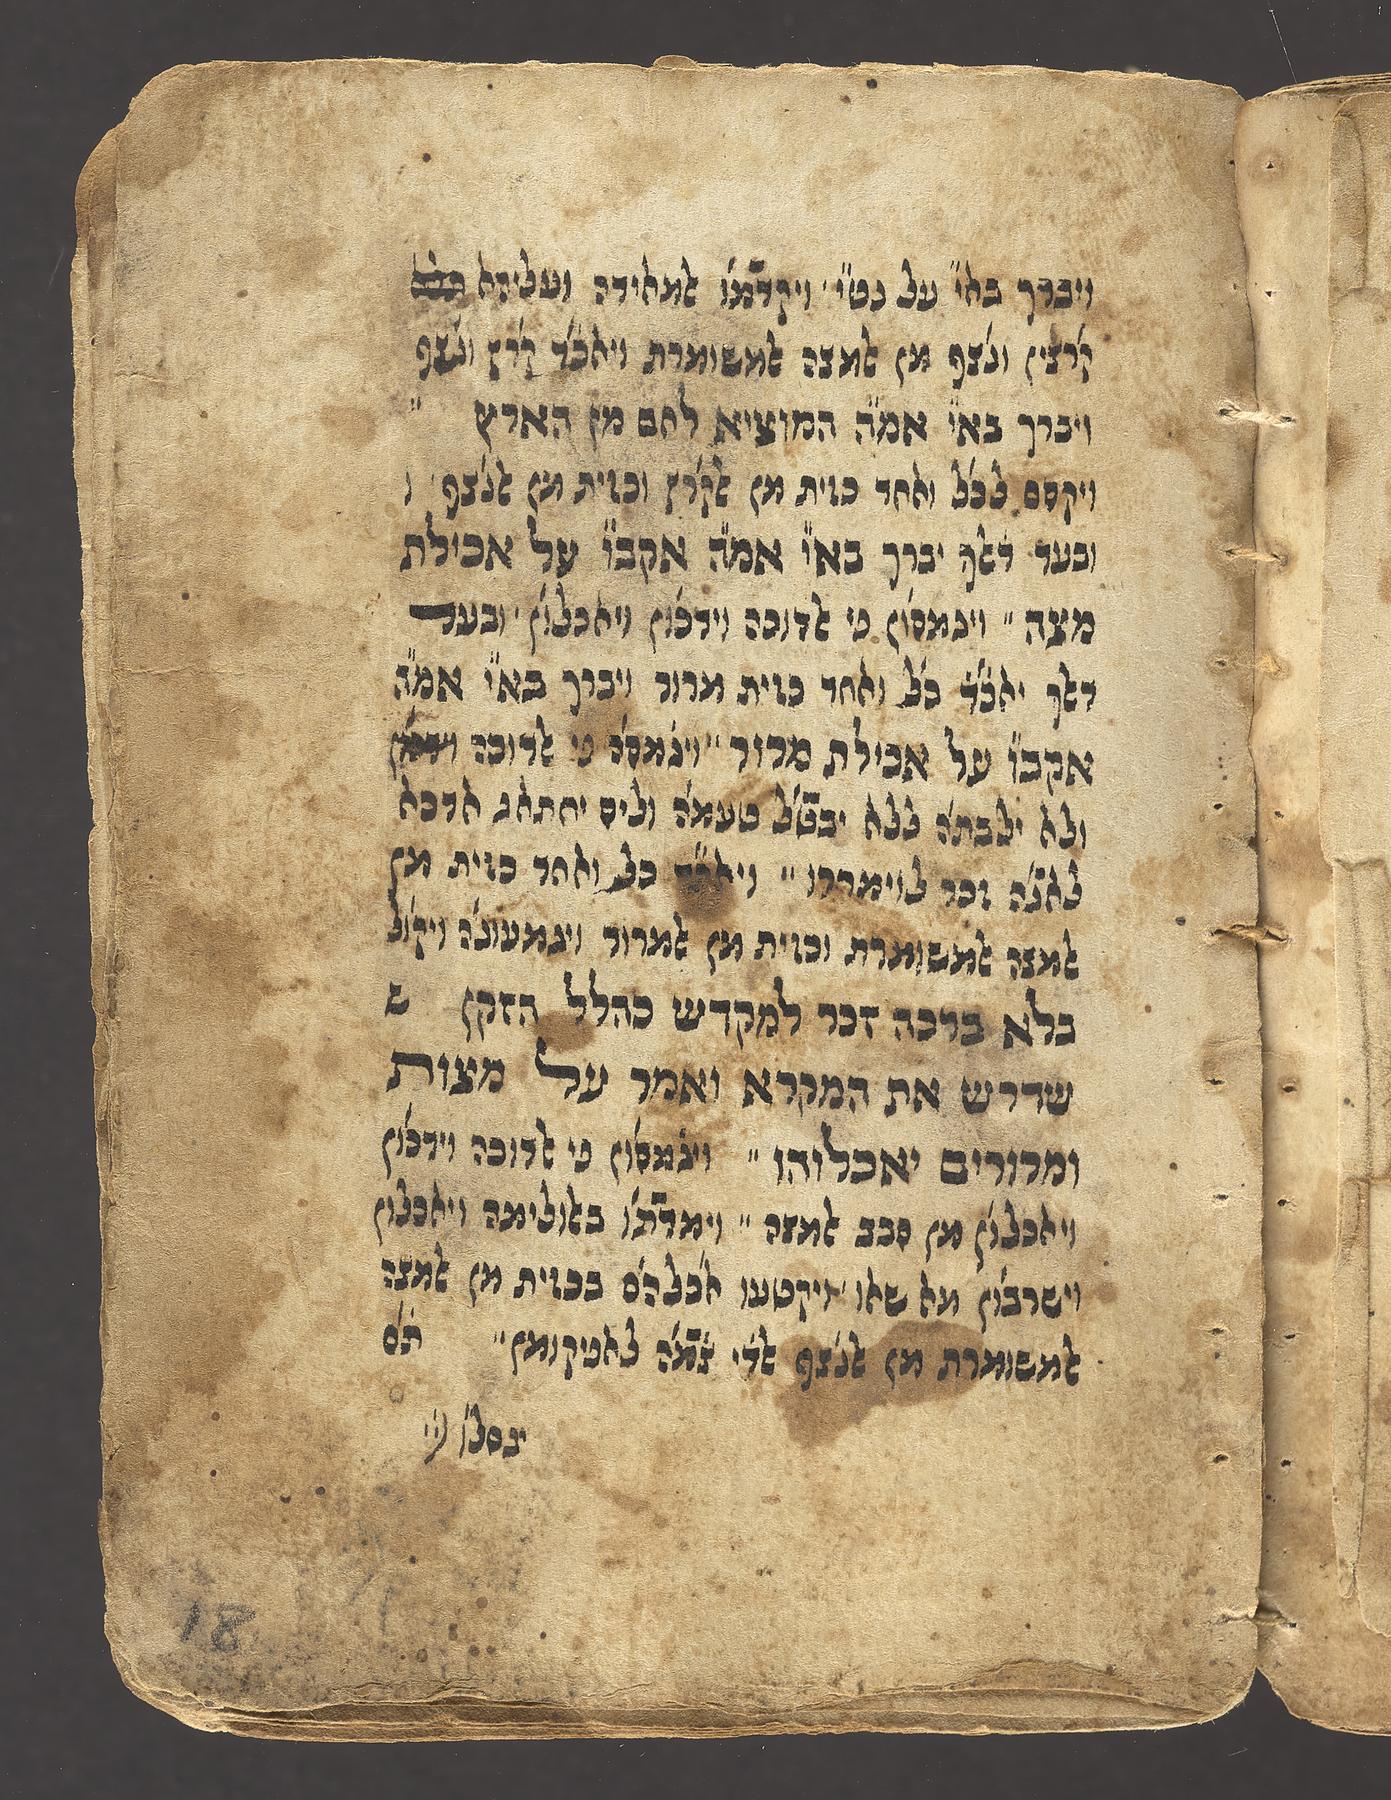 ויברך בא״י על נט״י ויקדמו ﭏמאידה ועליהא
קרצין ונצף מן ﭏמצה ﭏמשומרת ויאכד קרץ ונצף
ויברך בא״י אמ״ה המוציא לחם מן הארץ ״
ויקסם לכל ואחד כזית מן ﭏקרץ וכזית מן ﭏנצף
ובעד דﭏך יברך בא״י אמ״ה אקב״ו על אכילת
מצה ״ ויגמסון פי ﭏדוכה וידכון ויאכלון ובעד
דﭏך יאכד כל ואחד כזית מרור ויברך בא״י אמ״ה
אקב״ו על אכילת מרור ״ ויגמסה פי ﭏדוכה
ולא ילבתה ללא יבטל טעמה וליס יחתאג אדכא
לאנה זכר לוימררו ״ כל ואחד כזית מן
ﭏמצה ﭏמשומרת וכזית מן ﭏמרור ויגמעונה ויקול
בלא ברכה זכר למקדש כהלל הזקן ש
שדרש את המקרא ואמר על מצות
ומרורים יאכלוהו ״ ויגמסון פי ﭏדוכה וידכון
ויאכלון מן סבב ﭏמצה ״ וימדו באולימה ויאכלון
וישרבון מא שאו ויקטעו אכלהם בכזית מן ﭏמצה
ﭏמשומרת מן ﭏנצף ﭏדי צמה לאפיקומן ״ תם
יגסלו
18